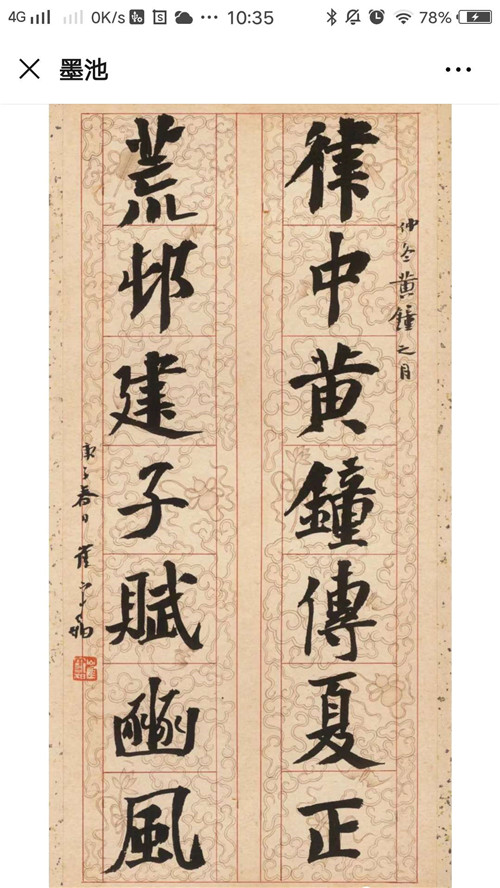 4G 0K/s 10:35 78%
墨池
仲冬黄鐘之月
律中黄鐘傳夏正
荒邨建子賦豳風
庚子春日